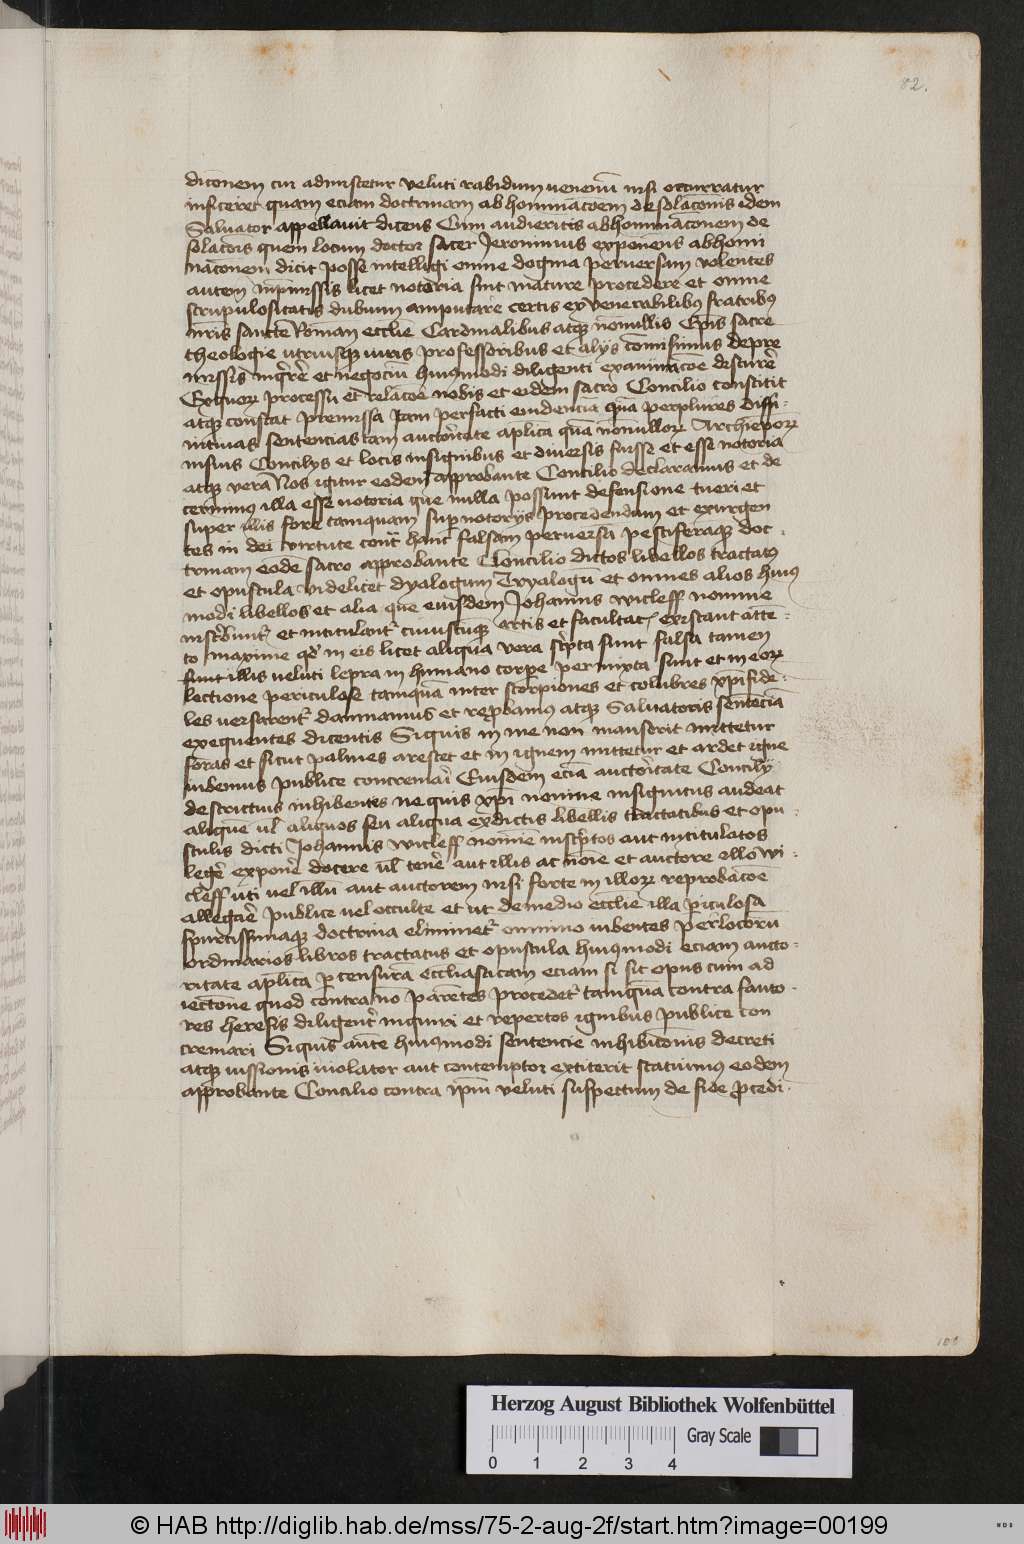 82.
dicōnem cui admiscetur veluti rabidum venenū nisi occurratur
inficeret quam eciam doctrinam abhominacōem desolacōnis idem
Saluator appellauit dicens Cum audieritis abhominacōnem de
solacōis quem locum doctor sacer Jeronimus exponens abhomi
nacōnem dicit posse intelligi omne dogma peruersum volentes
autem inpmissis licet notoria sint mature procedere et omne
scrupulositatis dubium amputare certis ex venerabilibus fratribus
nr̄is sancte Roman eccl̄ie Cardinalibus atqꝫ nōnullis Ep̄is sacre
theologie utriusqꝫ iuris professoribus et alijs comisimus de pre
missis inqr̄ere et negociū huiusmodi diligenti examinacōe discutē
Ex quorꝝ processu et relacōe nobis et eidem sacro Concilio constitit
atqꝫ constat premissa tam per facti euidenciā quā per plures diffi-
nitiuas sentencias tam auctōritate ap̄lica quā nonnullorꝝ Archiepōrꝝ
in suis Concilijs et locis insignibus et diuersis fuisse et esse notoria
atqꝫ vera Nos igitur eodem approbante Concilio declaramus et de
cernimus illa esse notoria que nulla possunt defensione tueri et
super illis fore tamquam sup notorijs procedendum et exurgen
tes in dei virtute cont̄ hanc falsam peruersā pestiferāqꝫ doc-
trinam eode sacro approbante Concilio dictos libellos tractatus
et opuscula videlicet dyalogum Tryalogū et omnes alios huius
modi libellos et alia que eiusdem Johannis wicleff nomine
inscribunt᷑ et intitulant᷑ cuiuscūqꝫ artis et facultat᷑ existant atte-
to maxime qd̄ in eis licet aliqua vera sc̄pta sunt falsa tamen
sunt illis veluti lepra in humano corpe permixta sunt et in eorꝝ
lectione periculose tamquā inter scorpiones et colubres xp̄ifide-
les versarent᷑ dammamus et reprobamus atqꝫ Saluatoris sentenciā
exequentes dicentis Siquis in me non manserit mittetur
foras et sicut palmes arescet et in ignem mittetur et ardet igne
iubemus publice concremari Eiusdem eciā auctōritate Concilij
districtius inhibentes ne quis xp̄i nomine insignitus audeat
aliquē ul̄ aliquos seu aliqua ex dictis libellis tractatibus et opu-
sculis dicti Johannis wicleff nomīe inscr̄ptos aut intitulatos
leḡe exponē docere ul̄ tenē aut illis ac nōie et auctore illo wi-
cleff uti vel illū aut auctorem nisi forte in illorꝝ reprobacōe
allegāe publice vel occulte et ut de medio eccl̄ie illa piculosa
spurcissimaqꝫ doctrina eliminet᷑ omnino iubentes per locorū
ordinarios libros tractatus et opuscula huiusmodi eciam aucto-
ritate ap̄lica p censurā eccl̄iasticam eciam si sit opus cum ad
iectone quod contra nō parentes procedet᷑ tamquā contra fauto-
res heresis diligent᷑ inquiri et repertos ignibus publice con
cremari Siquis aute huiusmodi sentencie inhibicōnis decreti
atqꝫ iussionis violator aut contemptor extiterit statuimus eodem
approbante Concilio contra ip̄m veluti suspectum de fide procedi-
Herzog August Bibliothek Wolfenbüttel
0 1 2 3 4 Gray Scale
© HAB http://diglib.hab.de/mss/75-2-aug-2f/start.htm?image=00199